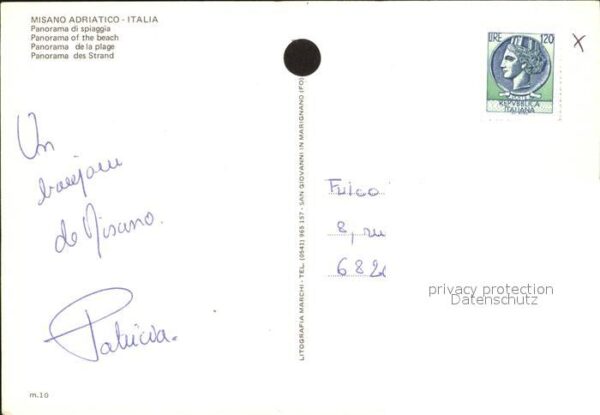 MISANO ADRIATICO - ITALIA
Panorama di spiaggia
Panorama of the beach
Panorama de la plage
Panorama des Strand
LIRE 120
POSTE
REPVBBLICA
ITALIANA
x
Un
bonjour
de Misano.
Patricia.
LITOGRAFIA MARCHI - TEL. (0541) 965 157 - SAN GIOVANNI IN MARIGNANO (FO)
8, ru
682
privacy protection
Datenschutz
m.10